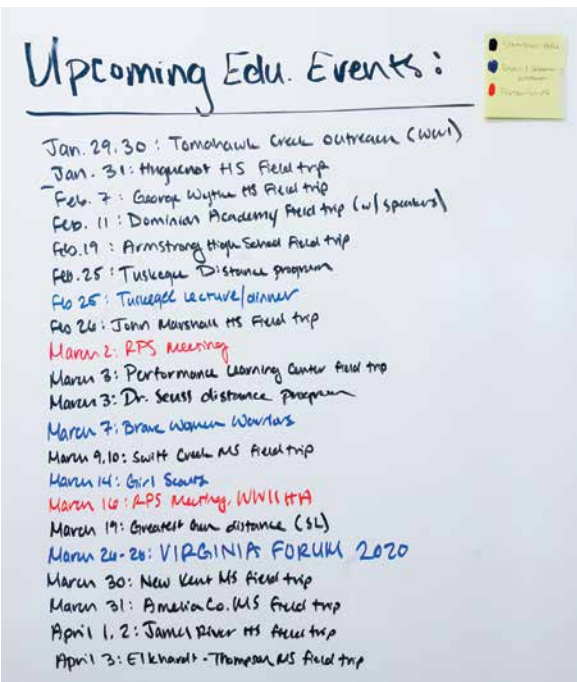 Upcoming Edu. Events:
Jan. 29,30: Tomahawk Creek outreach (WWI)
Jan. 31: Huguenot HS Field trip
Feb. 7: George Wythe HS Field trip
Feb. 11: Dominion Academy Field trip (w/ speakers)
Feb. 19: Armstrong High School Field trip
Feb. 25: Tuskegee Distance program
Feb 25: Tuskegee Lecture/dinner
Feb 26: John Marshall HS Field trip
March 2: RPS Meeting
March 3: Performance Learning Center field trip
March 3: Dr. Seuss distance program
March 7: Brave Women Warriors
March 9,10: Swift Creek MS Field trip
March 14: Girl Scouts
March 16: RPS Meeting, WWII HA
March 19: Greatest Gen distance (SL)
March 26-28: VIRGINIA FORUM 2020
March 30: New Kent MS field trip
March 31: Amelia Co. MS field trip
April 1, 2: James River HS field trip
April 3: Elkhardt-Thompson MS field trip